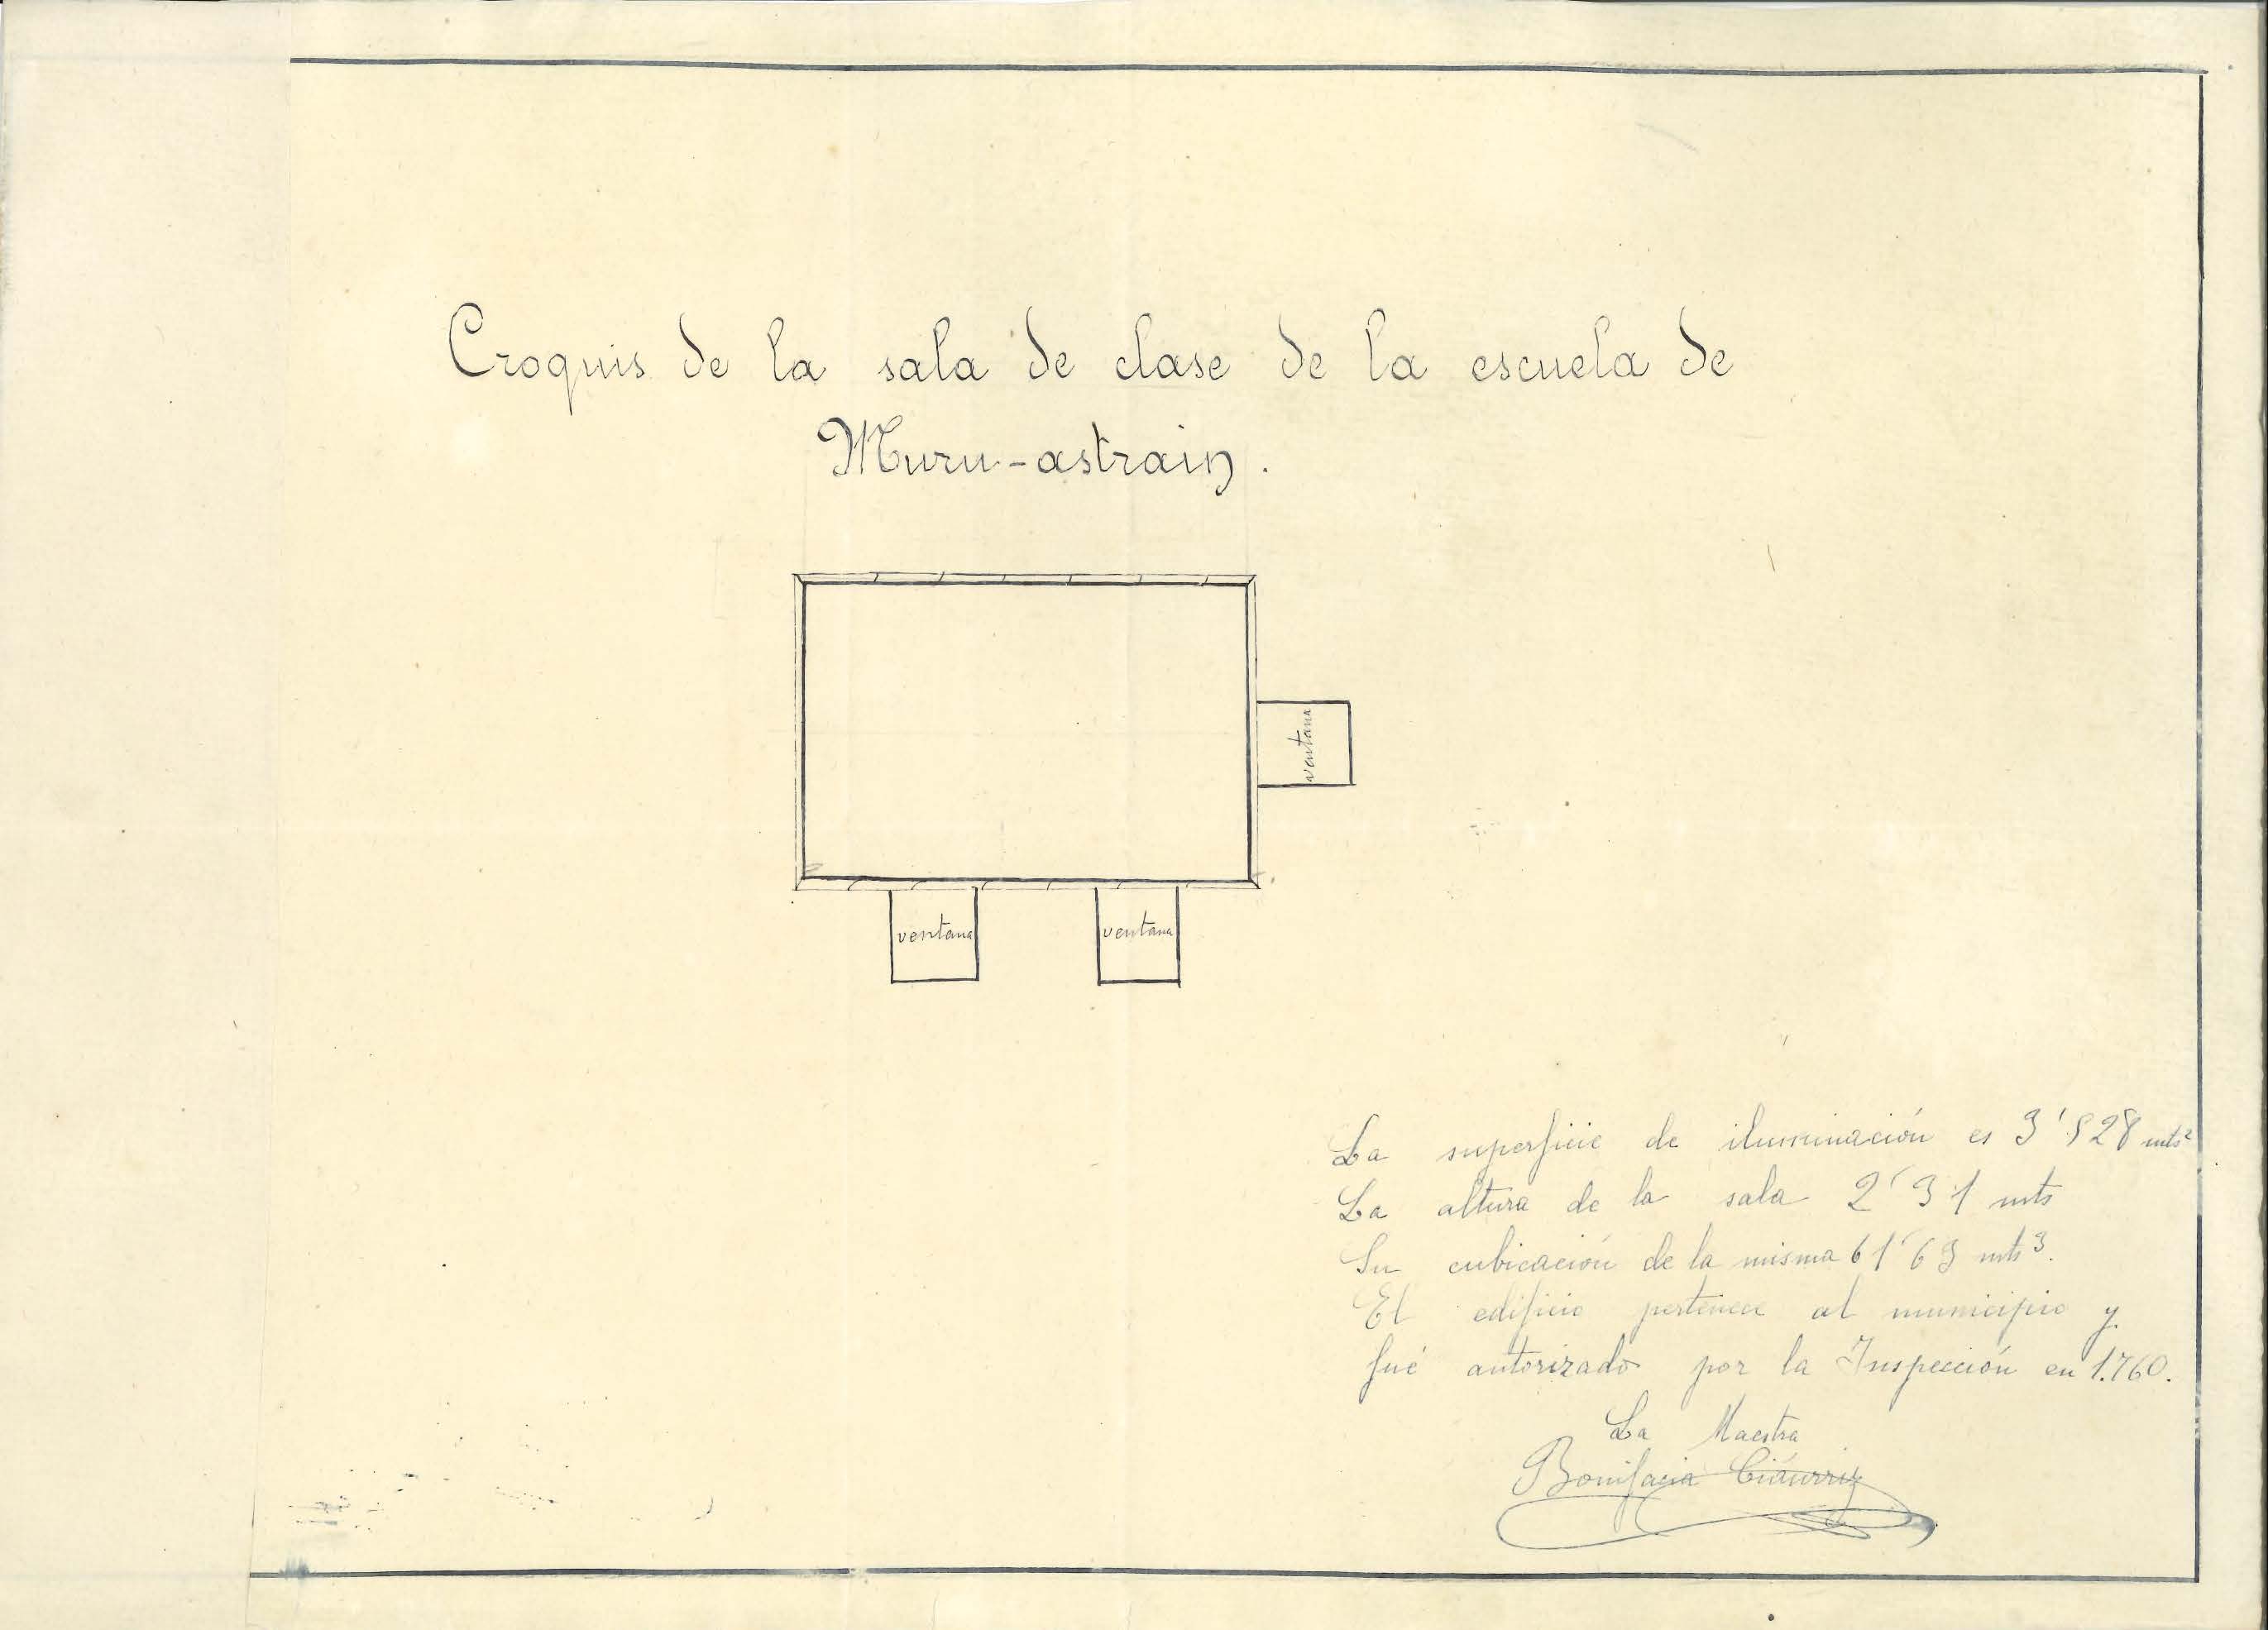 Croquis de la sala de clase de la escuela de
Muru-astrain.
ventana
ventana
ventana
La superficie de iluminación es 3'828 mts²
La altura de la sala 2'31 mts
Su cubicación de la misma 61'63 mts³.
El edificio pertenece al municipio y
fué autorizado por la Inspección en 1.760.
La Maestra
Bonifacia Ciáurriz